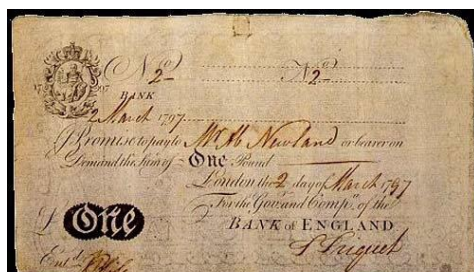 No 2 No 2
17 97
BANK
2 March 1797
I Promise to pay to Mr Ab Newland or bearer on
Demand the Sum of One Pound
London the 2 day of March 1797
For the Gov: and Compa. of the
£ One BANK of ENGLAND
Entd